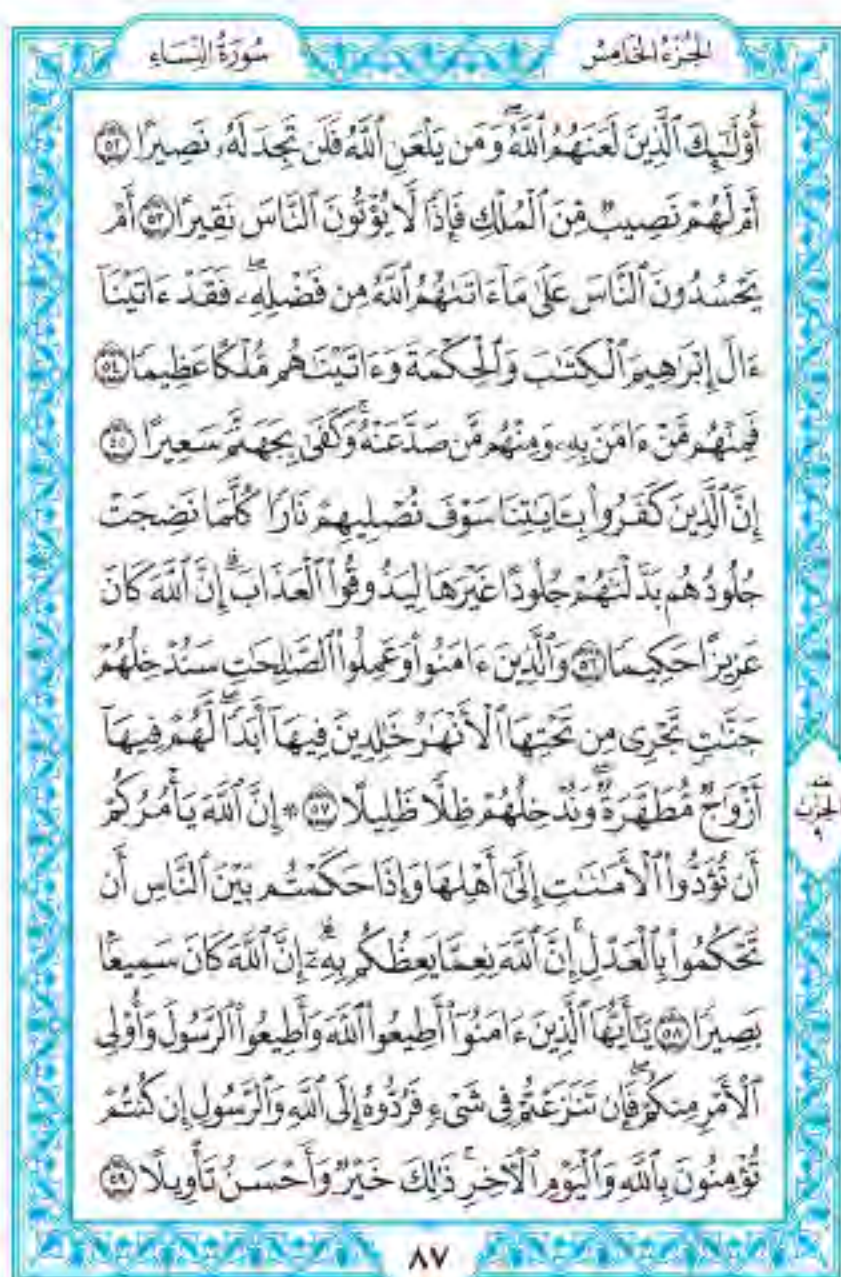 الجزء الخامس
سورة النساء
أُوْلَٰٓئِكَ ٱلَّذِينَ لَعَنَهُمُ ٱللَّهُۖ وَمَن يَلْعَنِ ٱللَّهُ فَلَن تَجِدَ لَهُۥ نَصِيرًا ٥٢
أَمْ لَهُمْ نَصِيبٌ مِّنَ ٱلْمُلْكِ فَإِذًا لَّا يُؤْتُونَ ٱلنَّاسَ نَقِيرًا ٥٣ أَمْ
يَحْسُدُونَ ٱلنَّاسَ عَلَىٰ مَآ ءَاتَىٰهُمُ ٱللَّهُ مِن فَضْلِهِۦۖ فَقَدْ ءَاتَيْنَآ
ءَالَ إِبْرَٰهِيمَ ٱلْكِتَٰبَ وَٱلْحِكْمَةَ وَءَاتَيْنَٰهُم مُّلْكًا عَظِيمًا ٥٤
فَمِنْهُم مَّنْ ءَامَنَ بِهِۦ وَمِنْهُم مَّن صَدَّ عَنْهُۚ وَكَفَىٰ بِجَهَنَّمَ سَعِيرًا ٥٥
إِنَّ ٱلَّذِينَ كَفَرُوا۟ بِـَٔايَٰتِنَا سَوْفَ نُصْلِيهِمْ نَارًا كُلَّمَا نَضِجَتْ
جُلُودُهُم بَدَّلْنَٰهُمْ جُلُودًا غَيْرَهَا لِيَذُوقُوا۟ ٱلْعَذَابَۗ إِنَّ ٱللَّهَ كَانَ
عَزِيزًا حَكِيمًا ٥٦ وَٱلَّذِينَ ءَامَنُوا۟ وَعَمِلُوا۟ ٱلصَّٰلِحَٰتِ سَنُدْخِلُهُمْ
جَنَّٰتٍ تَجْرِى مِن تَحْتِهَا ٱلْأَنْهَٰرُ خَٰلِدِينَ فِيهَآ أَبَدًاۖ لَّهُمْ فِيهَآ
أَزْوَٰجٌ مُّطَهَّرَةٌۖ وَنُدْخِلُهُمْ ظِلًّا ظَلِيلًا ٥٧ ۞ إِنَّ ٱللَّهَ يَأْمُرُكُمْ
أَن تُؤَدُّوا۟ ٱلْأَمَٰنَٰتِ إِلَىٰٓ أَهْلِهَا وَإِذَا حَكَمْتُم بَيْنَ ٱلنَّاسِ أَن
تَحْكُمُوا۟ بِٱلْعَدْلِۚ إِنَّ ٱللَّهَ نِعِمَّا يَعِظُكُم بِهِۦٓۗ إِنَّ ٱللَّهَ كَانَ سَمِيعًۢا
بَصِيرًا ٥٨ يَٰٓأَيُّهَا ٱلَّذِينَ ءَامَنُوٓا۟ أَطِيعُوا۟ ٱللَّهَ وَأَطِيعُوا۟ ٱلرَّسُولَ وَأُو۟لِى
ٱلْأَمْرِ مِنكُمْۖ فَإِن تَنَٰزَعْتُمْ فِى شَىْءٍ فَرُدُّوهُ إِلَى ٱللَّهِ وَٱلرَّسُولِ إِن كُنتُمْ
تُؤْمِنُونَ بِٱللَّهِ وَٱلْيَوْمِ ٱلْـَٔاخِرِۚ ذَٰلِكَ خَيْرٌ وَأَحْسَنُ تَأْوِيلًا ٥٩
الحزب
٩
٨٧